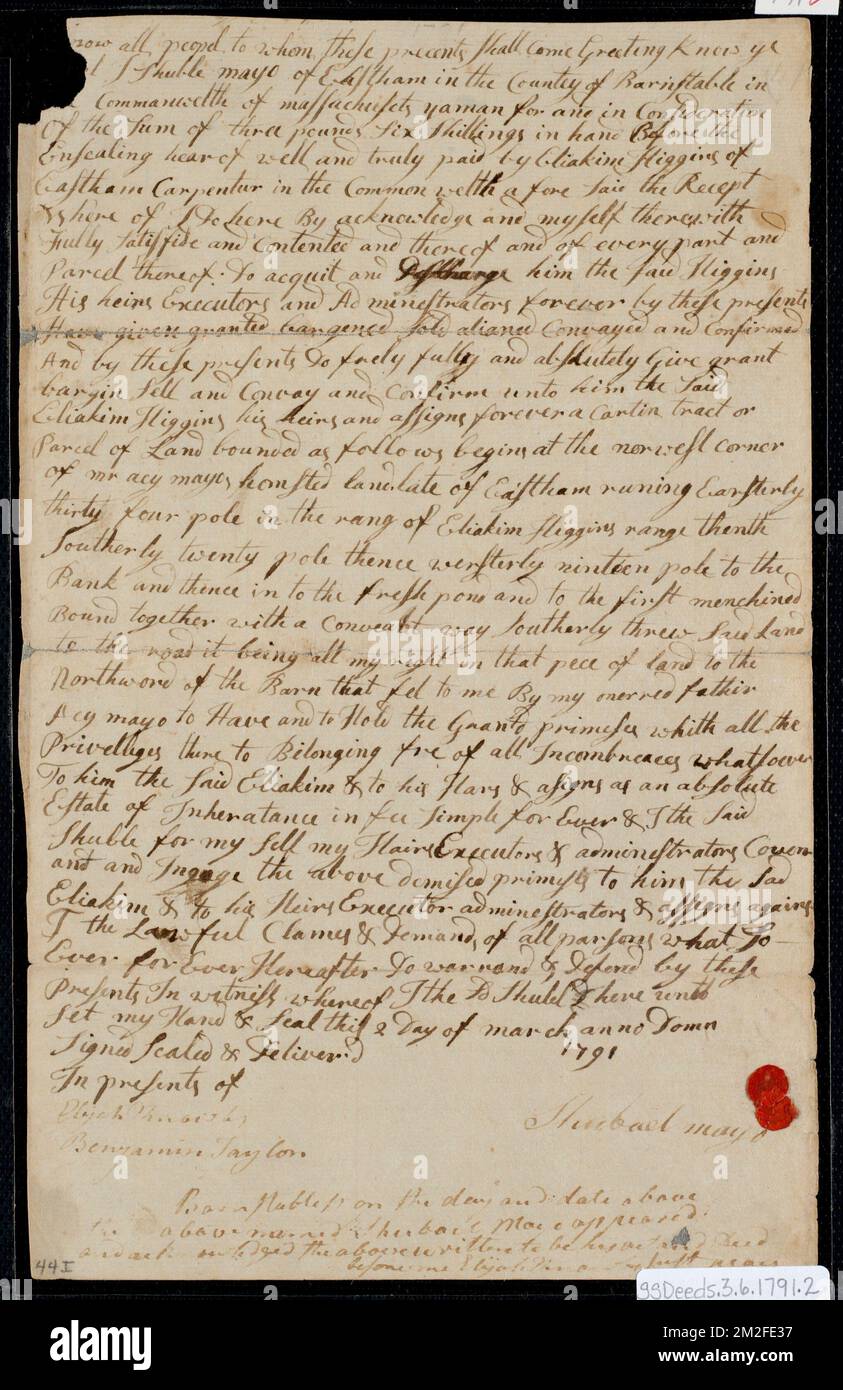 now all peopel to whom these precents Shall Come Greeting Know ye
I Shuble mayo of Eastham in the Countey of Barnstable in
Commanwelth of massachusets yaman for and in Consideration
Of the Sum of three pounds Six Shillings in hand Before the
Ensealing hearof well and truly paid by Eliakim Higgins of
Eastham Carpentur in the Common welth a fore Said the Recept
where of I Do here By acknowledge and myself therewith
Fully Satisfide and Contented and thereof and of every part and
Parcel thereof Do acquit and Discharge him the said Higgins
His heirs Executors and Adminestrators forever by these presents
Have given granted bargened sold alianed Convayed and Confirmed
And by these presents Do frely fully and absolutely Give grant
bargin Sell and Convay and Confirm unto him the Said
Eliakim Higgins his heirs and assigns forever a Cartin tract or
Parcel of Land bounded as follows begins at the norwest corner
of mr acy mayos homsted land late of Eastham runing Earsterly
thirty four pole in the rang of Eliakim Higgins range thenth
Southerly twenty pole thence wersterly ninteen pole to the
Bank and thence in to the fresh pond and to the first menchined
Bound together with a Conveant way Southerly threw Said Land
to the road it being all my right in that pece of land to the
Northword of the Barn that fel to me By my onerred father
Acy mayo to Have and to Hold the Grantd primeses whith all the
Privelliges there to Bilonging fre of all Incombreaces whatsoever
To him the Said Eliakim & to his Hars & assigns as an absolute
Estate of Inheratance in fee Simple for Ever & I the Said
Shuble for my Self my Hairs Executors & adminestrators Coven
ant and Ingage the above demised primeses to him the Sad
Eliakim & to his Heirs Executor adminestrators & assigns agains
T the Lawful Clames & Demands of all parsons what So
Ever for Ever Hereafter Do warrand & Defend by these
Presents In witness whereof I the Sd Shubl here unto
Set my Hand & Seal this 2 Day of march anno Domn
Signed Sealed & Deliverd 1791
In presents of
Elijah
Shubael mayo
Benjamin Taylor
Barnstable ss on the day and date above
the above named Shubail Mao appeared
and acknowledged the above written to be his act and Deed
before me Elijah Just peace
44I
ggDeeds.3.6.1791.2
alamy
Image ID: 2M2FE37
www.alamy.com